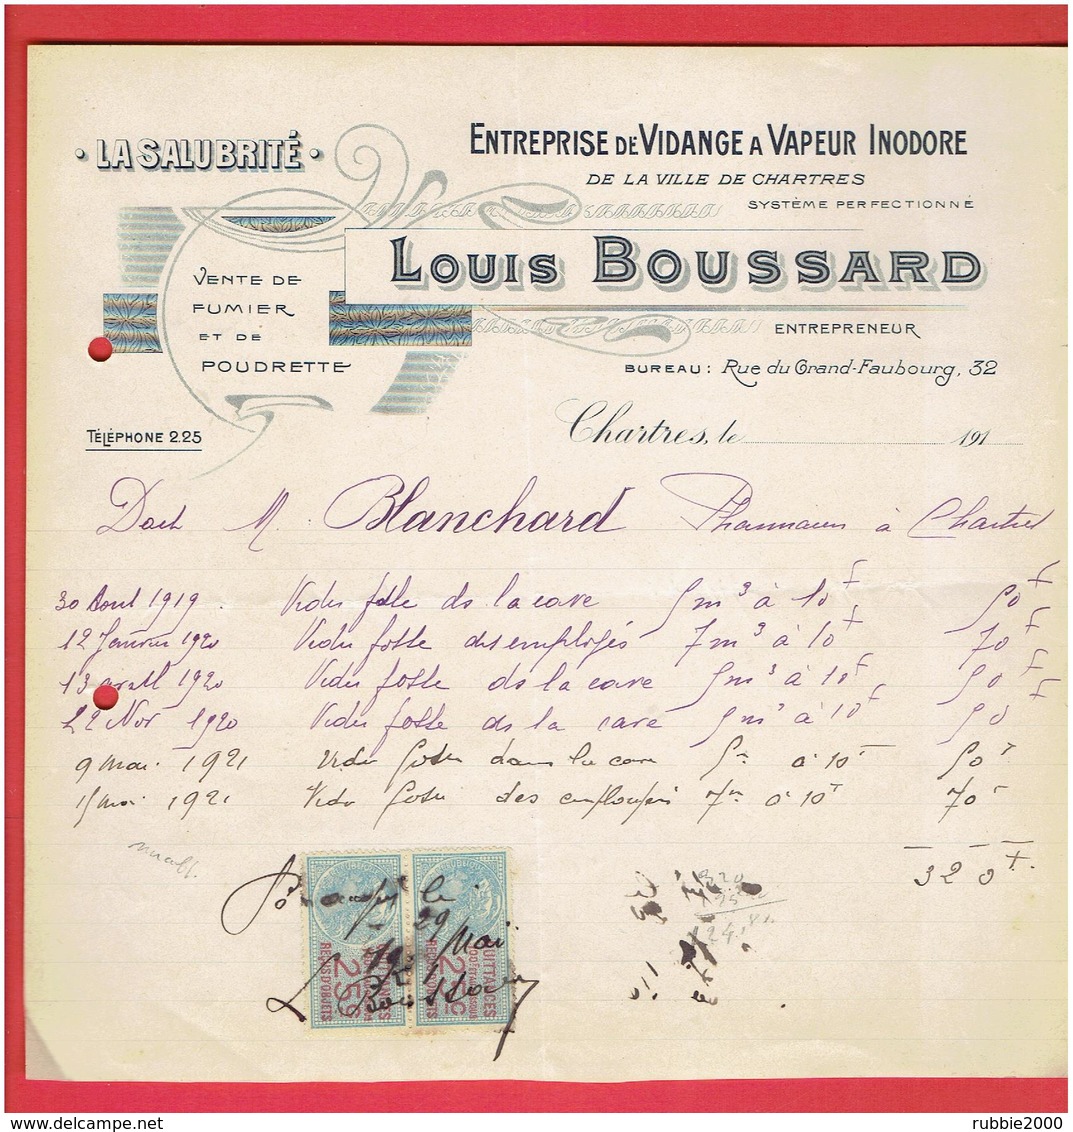 • LA SALUBRITÉ •
ENTREPRISE DE VIDANGE A VAPEUR INODORE
DE LA VILLE DE CHARTRES
SYSTÈME PERFECTIONNÉ
LOUIS BOUSSARD
VENTE DE
FUMIER
ET DE
POUDRETTE
ENTREPRENEUR
BUREAU : Rue du Grand-Faubourg, 32
TÉLÉPHONE 2.25
Chartres, le 191
Doit M. Blanchard Pharmacien à Chartres
30 Aout 1919 Vider fosse ds la cave 5 m3 à 10 F 50 F
12 Janvier 1920 Vider fosse des employés 7 m3 à 10 F 70 F
13 avril 1920 Vider fosse ds la cave 5 m3 à 10 F 50 F
22 Nov 1920 Vider fosse ds la cave 5 m3 à 10 F 50 F
9 mai 1921 Vider fosse dans la cave 5 m à 10 F 50 F
15 mai 1921 Vider fosse des employés 7 m à 10 F 70 F
320 F.
Pour acquit le
29 Mai
1921
L Boussard
25c
REÇUS D'OBJETS
QUITTANCES
320
delcampe.net
rubbie2000